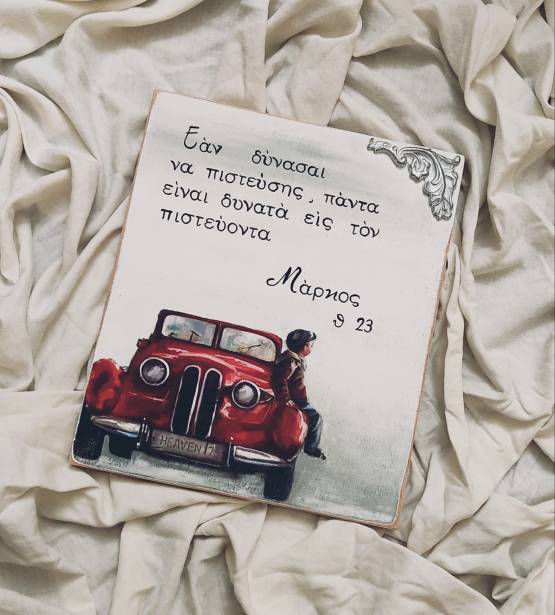 Εὰν δὺνασαι
να πιστεὺσης, πὰντα
εὶναι δυνατὰ εὶς τὸν
πιστεὺοντα
Μὰρκος
θ 23
HEAVEN 17